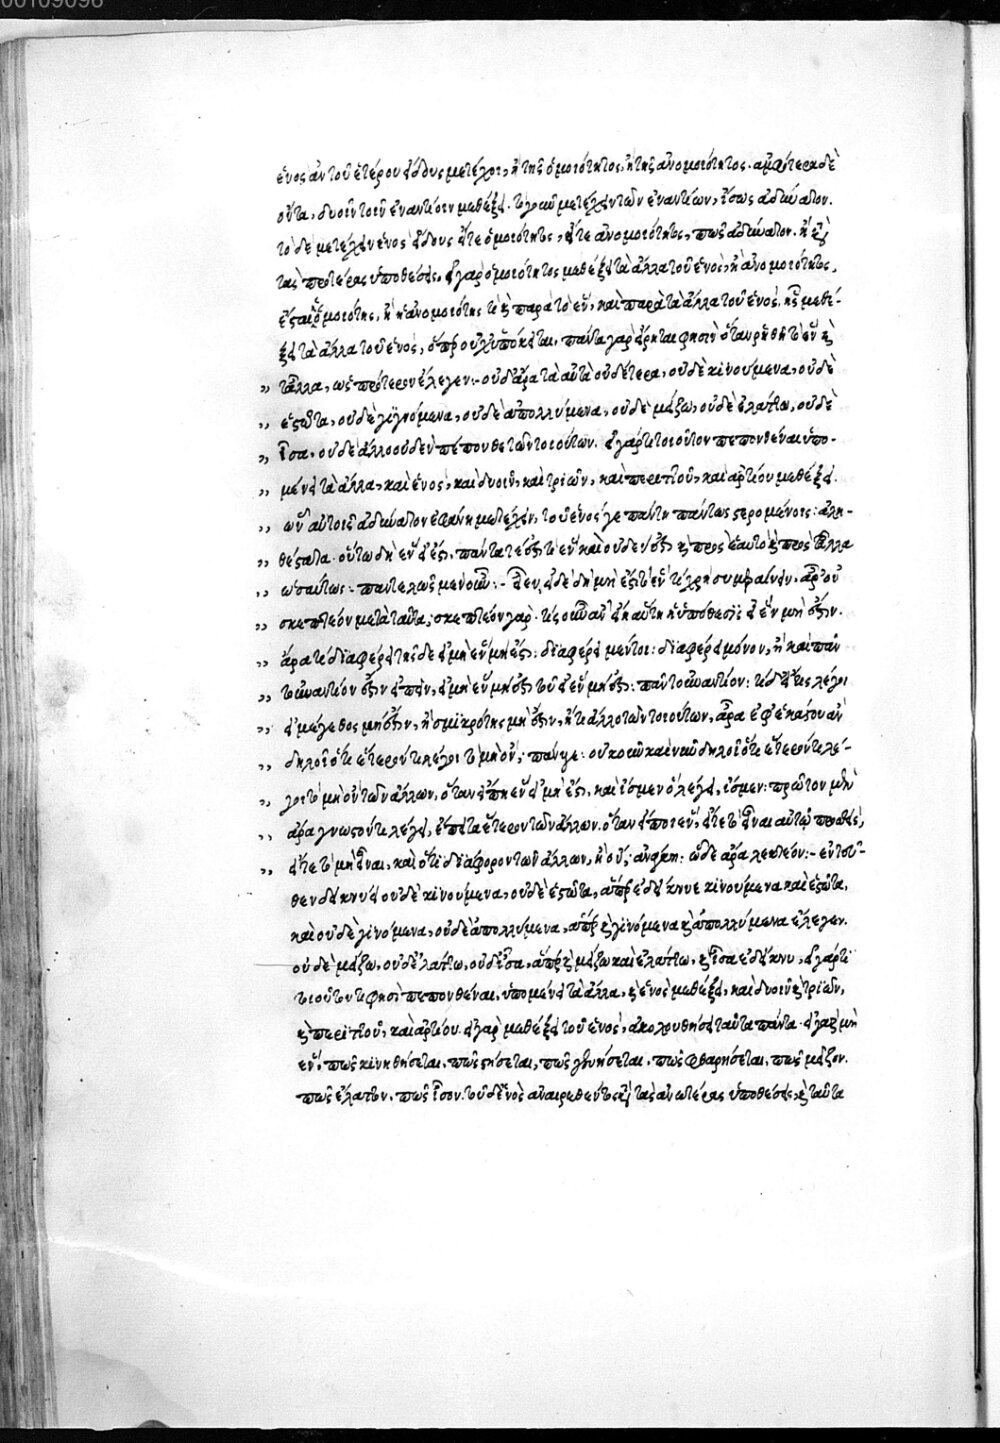 00109098
ἑνὸς ἂν τοῦ ἑτέρου εἴδους μετέχοι, ἢ τῆς ὁμοιότητος, ἢ τῆς ἀνομοιότητος. ἀμφότερα δὲ
οὖτα, δυοῖν τοῖν ἐναντίοιν μεθέξει. τὸ γοῦν μετέχειν τῶν ἐναντίων, ἴσως ἀδύνατον.
τὸ δὲ μετέχειν ἑνὸς εἴδους εἴτε ὁμοιότητος, εἴτε ἀνομοιότητος, πῶς ἀδύνατον. ἢ ἐπὶ
τὰς προτέρας ὑποθέσεις, εἰ γὰρ ὁμοιότητος μεθέξει τὰ ἄλλα τοῦ ἑνὸς, ἢ ἀνομοιότητος,
ἔσται ὁμοιότης, ἢ ἡ ἀνομοιότης τὶ καὶ παρὰ τὸ ἓν, καὶ παρὰ τὰ ἄλλα τοῦ ἑνὸς, ἧς μεθέ-
ξει τὰ ἄλλα τοῦ ἑνὸς, ὅπερ οὐχ ὑπόκειται. πάντα γὰρ εἴρηται φησὶν ὅταν ῥηθῇ τὸ ἓν καὶ
,, τἆλλα, ὡς πρότερον ἔλεγεν:- οὐδ' ἄρα τὰ αὐτὰ οὐδ' ἕτερα, οὐδὲ κινούμενα, οὐδὲ
,, ἑστῶτα, οὐδὲ γιγνόμενα, οὐδὲ ἀπολλύμενα, οὐδὲ μείζω, οὐδὲ ἐλάττω, οὐδὲ
,, ἴσα, οὐδὲ ἄλλο οὐδὲν πέπονθε τῶν τοιούτων. εἰ γάρ τι τοιοῦτον πεπονθέναι ὑπο-
,, μένει τὰ ἄλλα, καὶ ἑνὸς, καὶ δυοῖν, καὶ τριῶν, καὶ περιττοῦ, καὶ ἀρτίου μεθέξει.
,, ὧν αὐτοῖς ἀδύνατον ἐφάνη μετέχειν, τοῦ ἑνός γε πάντη πάντως στερομένοις: ἀλη-
,, θέστατα. οὕτω δὴ ἓν εἰ ἔστι, πάντα τέ ἐστι τὸ ἓν καὶ οὐδέν ἐστι καὶ πρὸς ἑαυτὸ καὶ πρὸς τἆλλα
,, ὡσαύτως:- παντελῶς μὲν οὖν:- εἶεν, εἰ δὲ δὴ μὴ ἔστι τὸ ἓν τί χρὴ συμβαίνειν. ἆρ' οὐ
,, σκεπτέον μετὰ ταῦτα; σκεπτέον γάρ. τίς οὖν ἂν εἴη αὕτη ἡ ὑπόθεσις εἰ ἓν μὴ ἔστιν.
,, ἆρά τι διαφέρει τῆσδε εἰ μὴ ἓν μὴ ἔστι: διαφέρει μέντοι: διαφέρει μόνον, ἢ καὶ πᾶν
,, τοὐναντίον ἐστὶν εἰπεῖν, εἰ μὴ ἓν μὴ ἔστι τοῦ εἰ ἓν μὴ ἔστι: πᾶν τοὐναντίον: τί δ' εἴ τις λέγοι
,, εἰ μέγεθος μὴ ἔστιν, ἢ σμικρότης μὴ ἔστιν, ἤ τι ἄλλο τῶν τοιούτων, ἆρα ἐφ' ἑκάστου ἂν
,, δηλοῖ ὅτι ἕτερόν τι λέγοι τὸ μὴ ὂν; πάνυγε: οὐκοῦν καὶ νῦν δηλοῖ ὅτι ἕτερόν τι λέ-
,, γοι τὸ μὴ ὂν τῶν ἄλλων, ὅταν εἴπῃ ἓν εἰ μὴ ἔστι, καὶ ἴσμεν ὃ λέγει, ἴσμεν: πρῶτον μὲν
,, ἄρα γνωστόν τι λέγει, ἔπειτα ἕτερον τῶν ἄλλων. ὅταν εἴποι ἓν, εἴτε τὸ εἶναι αὐτῷ προσθεὶς,
,, εἴτε τὸ μὴ εἶναι, καὶ ὅτι διάφορον τῶν ἄλλων, ἢ οὔ; ἀνάγκη: ὧδε ἄρα λεκτέον:- ἐντεῦ-
θεν δείκνυσι οὐδὲ κινούμενα, οὐδὲ ἑστῶτα, ἅπερ ἐδείκνυε κινούμενα καὶ ἑστῶτα,
καὶ οὐδὲ γινόμενα, οὐδὲ ἀπολλύμενα, ἅπερ καὶ γινόμενα καὶ ἀπολλύμενα ἔλεγεν.
οὐδὲ μείζω, οὐδὲ ἐλάττω, οὐδὲ ἴσα, ἅπερ καὶ μείζω καὶ ἐλάττω, καὶ ἴσα ἐδείκνυ, εἰ γάρ τι
τοιοῦτον τι φησὶ πεπονθέναι, ὑπομένει τὰ ἄλλα, καὶ ἑνὸς μεθέξει, καὶ δυοῖν καὶ τριῶν,
καὶ περιττοῦ, καὶ ἀρτίου. εἰ γὰρ μεθέξει τοῦ ἑνὸς, ἀκολουθήσει ταῦτα πάντα. εἰ γὰρ μὴ
ἓν, πῶς κινηθήσεται. πῶς στήσεται, πῶς γενήσεται. πῶς φθαρήσεται. πῶς μεῖζον.
πῶς ἔλαττον. πῶς ἴσον. τοῦ δὲ ἑνὸς ἀναιρεθέντος ἐπὶ τὰς ἀνωτέρας ὑποθέσεις, καὶ ταῦτα